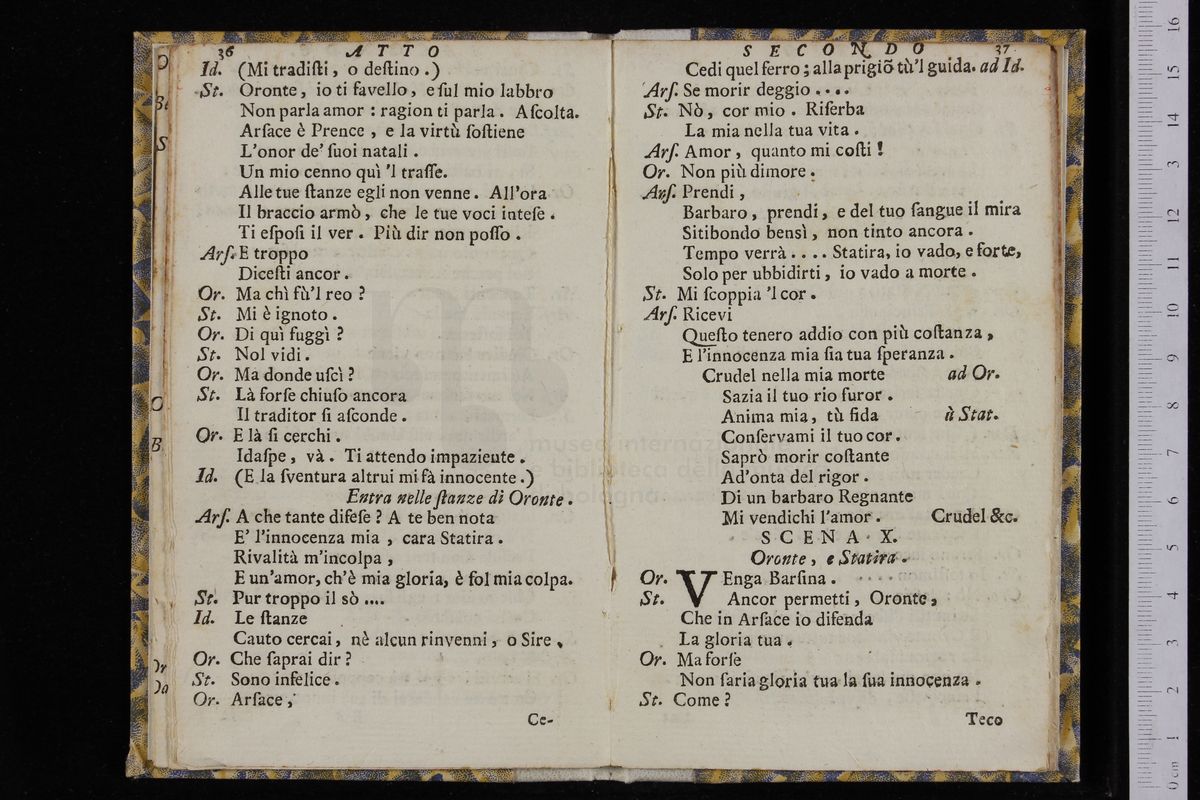 36 ATTO
Id. (Mi tradiſti, o deſtino.)
St. Oronte, io ti favello, e ſul mio labbro
Non parla amor: ragion ti parla. Aſcolta.
Arſace è Prence, e la virtù ſoſtiene
L'onor de' ſuoi natali.
Un mio cenno quì 'l traſſe.
Alle tue ſtanze egli non venne. All'ora
Il braccio armò, che le tue voci inteſe.
Ti eſpoſi il ver. Più dir non poſſo.
Arſ. E troppo
Diceſti ancor.
Or. Ma chì fù'l reo?
St. Mi è ignoto.
Or. Di quì fuggì?
St. Nol vidi.
Or. Ma donde uſcì?
St. Là forſe chiuſo ancora
Il traditor ſi aſconde.
Or. E là ſi cerchi.
Idaſpe, và. Ti attendo impaziente.
Id. (E la ſventura altrui mi fà innocente.)
Entra nelle ſtanze di Oronte.
Arſ. A che tante difeſe? A te ben nota
E' l'innocenza mia, cara Statira.
Rivalità m'incolpa,
E un'amor, ch'è mia gloria, è ſol mia colpa.
St. Pur troppo il sò ....
Id. Le ſtanze
Cauto cercai, nè alcun rinvenni, o Sire.
Or. Che ſaprai dir?
St. Sono infelice.
Or. Arſace,
Ce-
SECONDO 37
Cedi quel ferro; alla prigiõ tù'l guida. ad Id.
Arſ. Se morir deggio ....
St. Nò, cor mio. Riſerba
La mia nella tua vita.
Arſ. Amor, quanto mi coſti!
Or. Non più dimore.
Arſ. Prendi,
Barbaro, prendi, e del tuo ſangue il mira
Sitibondo bensì, non tinto ancora.
Tempo verrà .... Statira, io vado, e forte,
Solo per ubbidirti, io vado a morte.
St. Mi ſcoppia 'l cor.
Arſ. Ricevi
Queſto tenero addio con più coſtanza,
E l'innocenza mia ſia tua ſperanza.
Crudel nella mia morte ad Or.
Sazia il tuo rio furor.
Anima mia, tù fida à Stat.
Conſervami il tuo cor.
Saprò morir coſtante
Ad'onta del rigor.
Di un barbaro Regnante
Mi vendichi l'amor. Crudel &c.
SCENA X.
Oronte, e Statira.
Or. VEnga Barſina.
St. Ancor permetti, Oronte,
Che in Arſace io difenda
La gloria tua.
Or. Ma forſe
Non ſaria gloria tua la ſua innocenza.
St. Come?
Teco